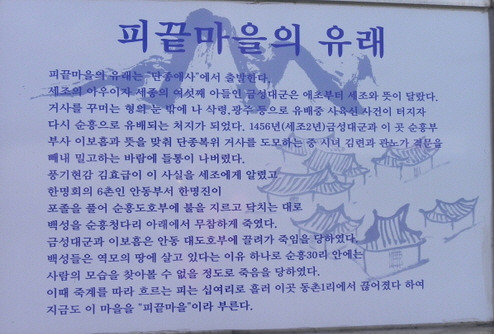 피끝마을의 유래
피끝마을의 유래는 "단종애사"에서 출발한다.
세조의 아우이자 세종의 여섯째 아들인 금성대군은 애초부터 세조와 뜻이 달랐다.
거사를 꾸미는 형의 눈 밖에 나 삭령,광주 등으로 유배중 사육신 사건이 터지자
다시 순흥으로 유배되는 처지가 되었다. 1456년(세조2년)금성대군과 이 곳 순흥부
부사 이보흠과 뜻을 맞춰 단종복위 거사를 도모하는 중 시녀 김련과 관노가 격문을
빼내 밀고하는 바람에 들통이 나버렸다.
풍기현감 김효급이 이 사실을 세조에게 알렸고
한명회의 6촌인 안동부서 한명진이
포졸을 풀어 순흥도호부에 불을 지르고 닥치는 대로
백성을 순흥청다리 아래에서 무참하게 죽였다.
금성대군과 이보흠은 안동 대도호부에 끌려가 죽임을 당하였다.
백성들은 역모의 땅에 살고 있다는 이유 하나로 순흥30리 안에는
사람의 모습을 찾아볼 수 없을 정도로 죽음을 당하였다.
이때 죽계를 따라 흐르는 피는 십여리로 흘러 이곳 동촌1리에서 끊어졌다 하여
지금도 이 마을을 "피끝마을"이라 부른다.